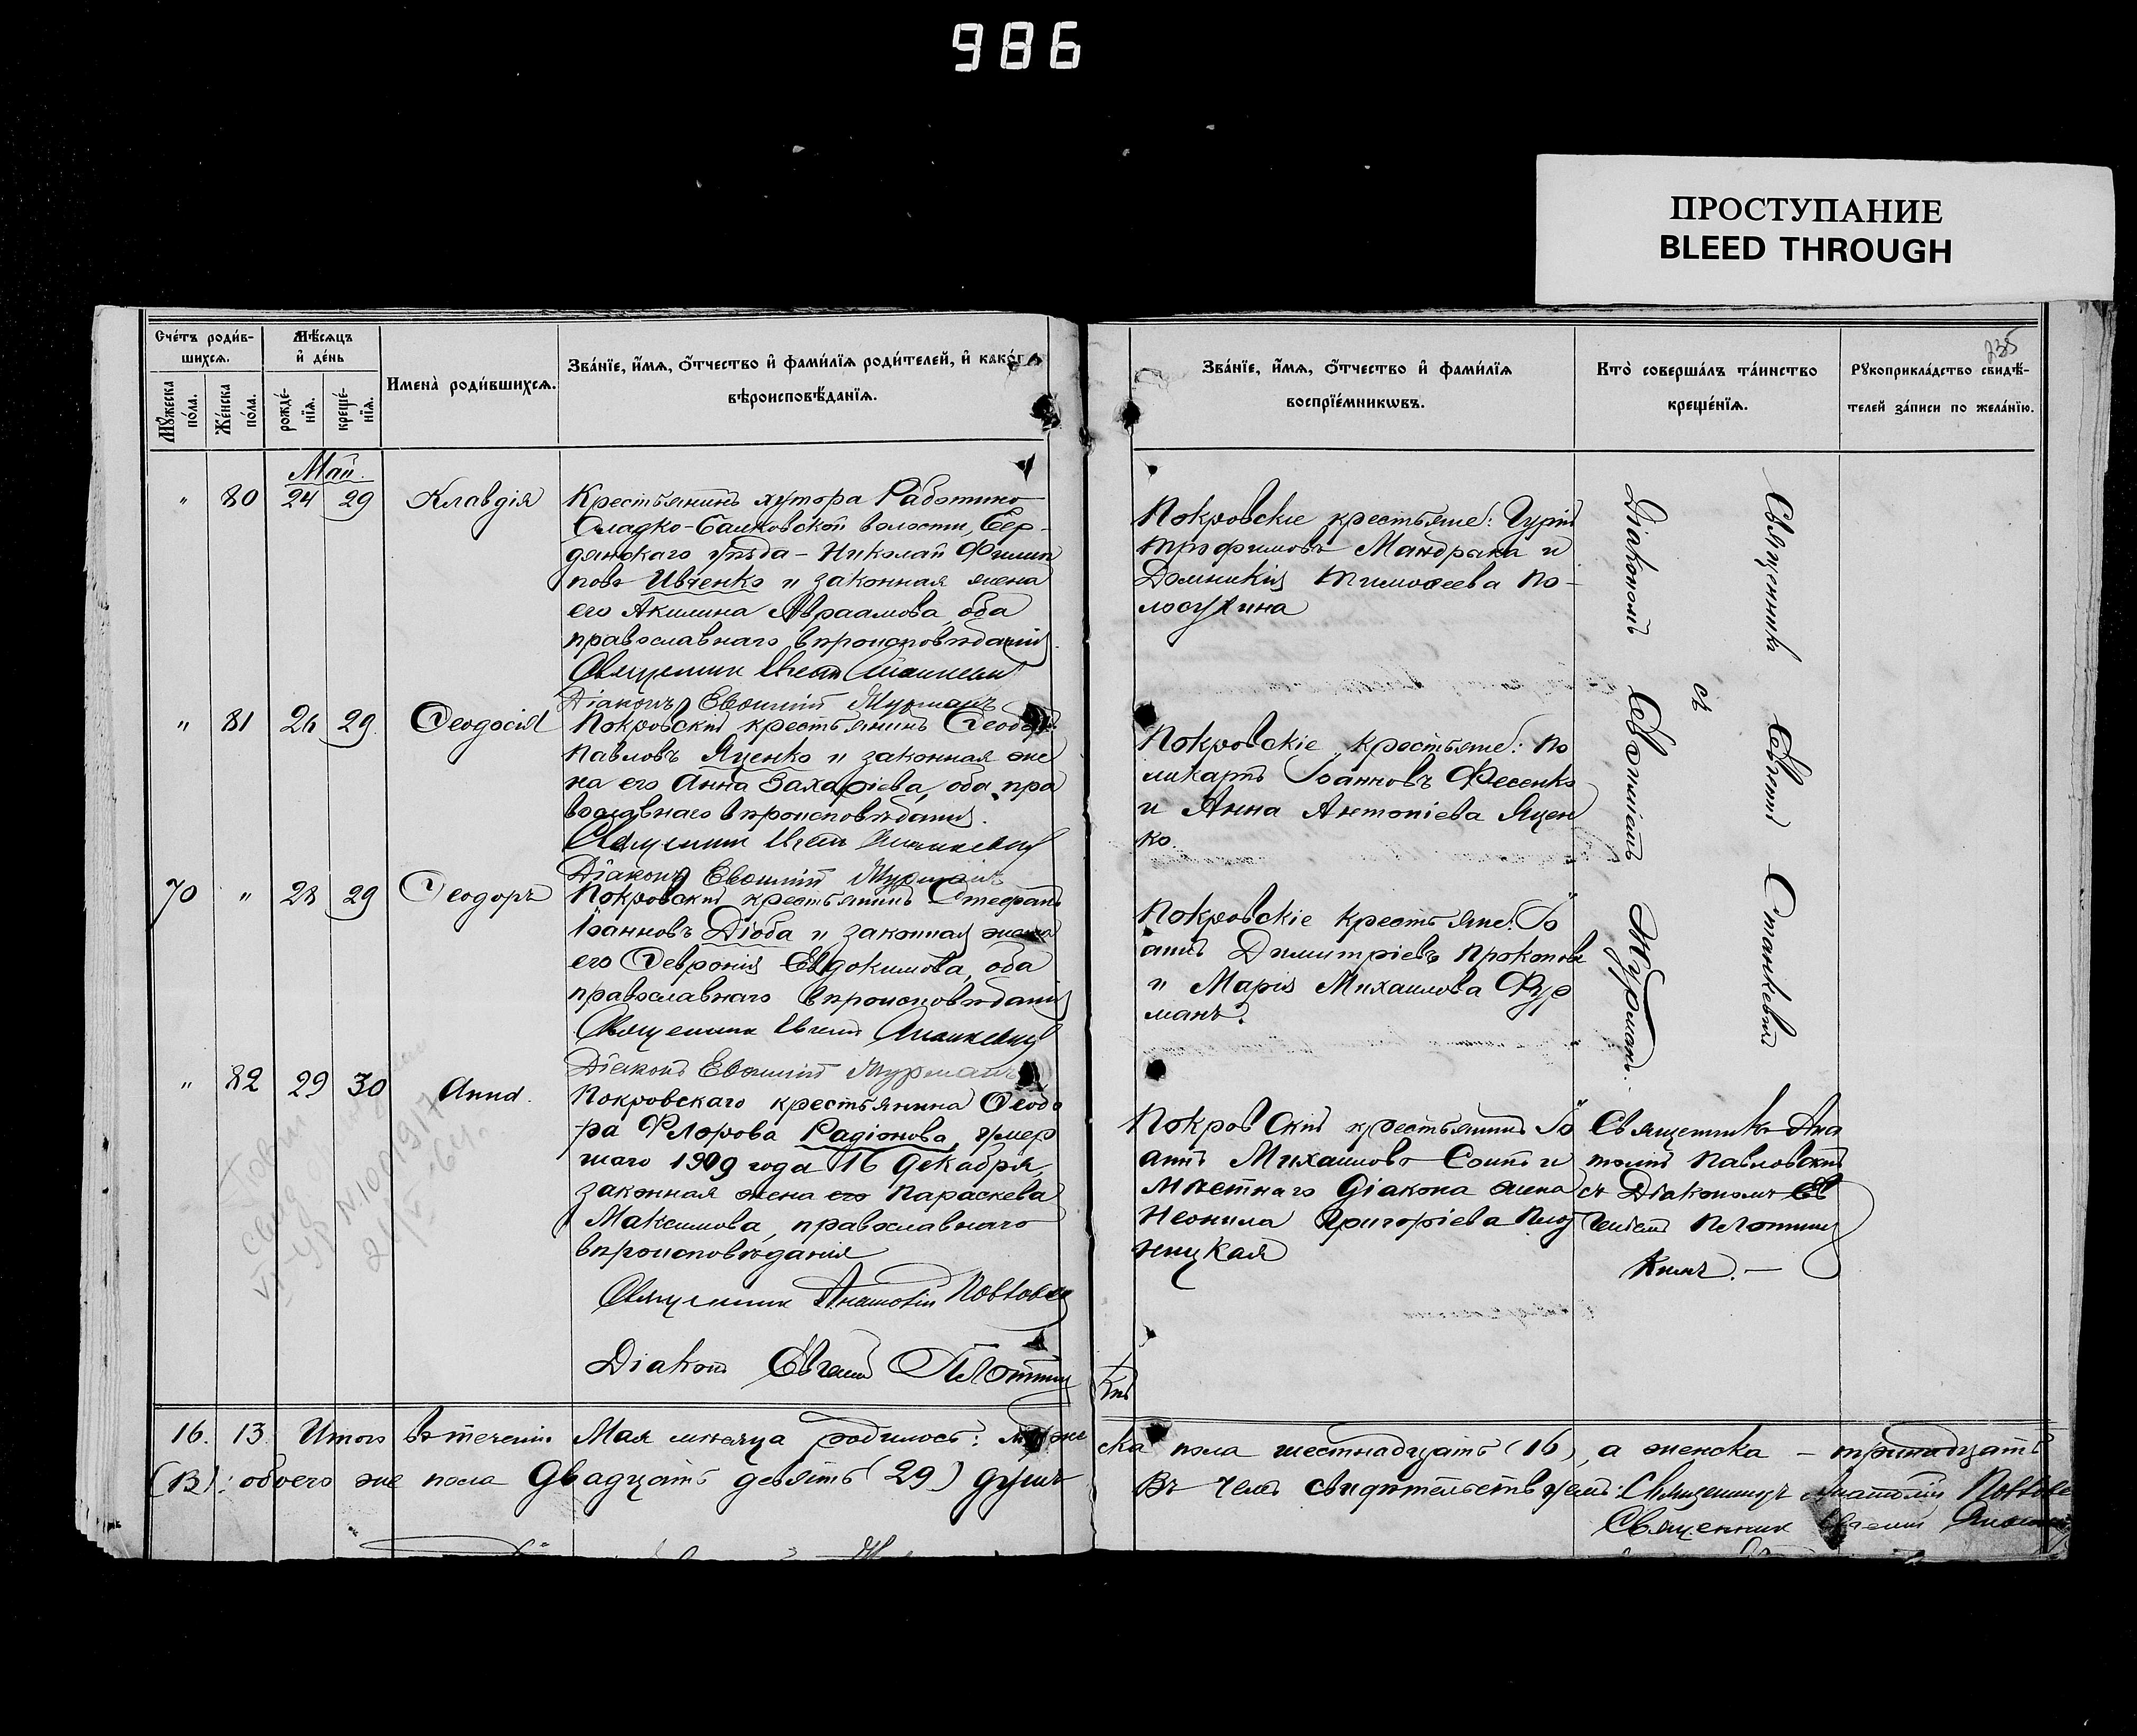 986
ПРОСТУПАНИЕ
BLEED THROUGH
235
Счетъ родив-
шихся.
Мѣсяцъ
и день
Мужеска
пола.
Женска
пола.
рожде-
нія.
креще-
нія.
Имена родившихся.
Званіе, имя, отчество и фамилія родителей, и какого
вѣроисповѣданія.
Званіе, имя, отчество и фамилія
воспріемниковъ.
Кто совершалъ таинство
крещенія.
Рукоприкладство свидѣ-
телей записи по желанію.
Май.
" 80 24 29 Клавдія
Крестьянинъ хутора Работино
Сладко-Балковской волости, Бер-
дянскаго уѣзда - Николай Филип
повъ Ивченко и законная жена
его Акилина Авраамова, оба
православнаго вѣроисповѣданія.
Священник Евгеній Станкевич
Діаконъ Евфимій Журманъ
Покровскіе крестьяне: Гурій
Трофимовъ Мандрыка и
Домникія Тимофеева По-
лосухина
" 81 26 29 Ѳеодосія
Покровскій крестьянинъ Ѳеодоръ
Павловъ Яценко и законная же
на его Анна Захаріева, оба пра
вославнаго вѣроисповѣданія.
Священник Евгеній Станкевич
Діаконъ Евфимій Журманъ
Покровскіе крестьяне: По
ликарпъ Іоанновъ Фесенко
и Анна Антоніева Яцен
ко.
70 " 28 29 Ѳеодоръ
Покровскій крестьянинъ Стефанъ
Іоанновъ Дзюба и законная жена
его Ѳевронія Евдокимова, оба
православнаго вѣроисповѣданія
Священник Евгеній Станкевич
Діаконъ Евфимій Журманъ
Покровскіе крестьяне: Іо
аннъ Димитріевъ Прокопов
и Марія Михаилова Фур
манъ.
Священникъ Евгеній Станкевичъ
съ
Діакономъ Евфиміемъ Журманъ.
" 82 29 30 Анна.
Покровскаго крестьянина Ѳеодо
ра Флорова Радіонова, умер
шаго 1909 года 16 Декабря,
законная жена его Параскева
Максимова, православнаго
вѣроисповѣданія
Священник Анатолій Павловскій
Діаконъ Евгеній Плотни
ков
Покровскій крестьянинъ Іо
аннъ Михаиловъ и
мѣстнаго діакона жена
Неонила Григоріева
Священникъ Ана
толій Павловскій
съ Діакономъ Ев
геніемъ Плотни
ков. —
16. 13. Итого въ теченіи Мая мѣсяца родилось: муже
ска пола шестнадцать (16), а женска - тринадцать
(13): обоего же пола двадцать девять (29) душъ
Въ чемъ свидѣтельствуемъ: Священникъ Анатолій Павловс
Священник Евгеній Станкев